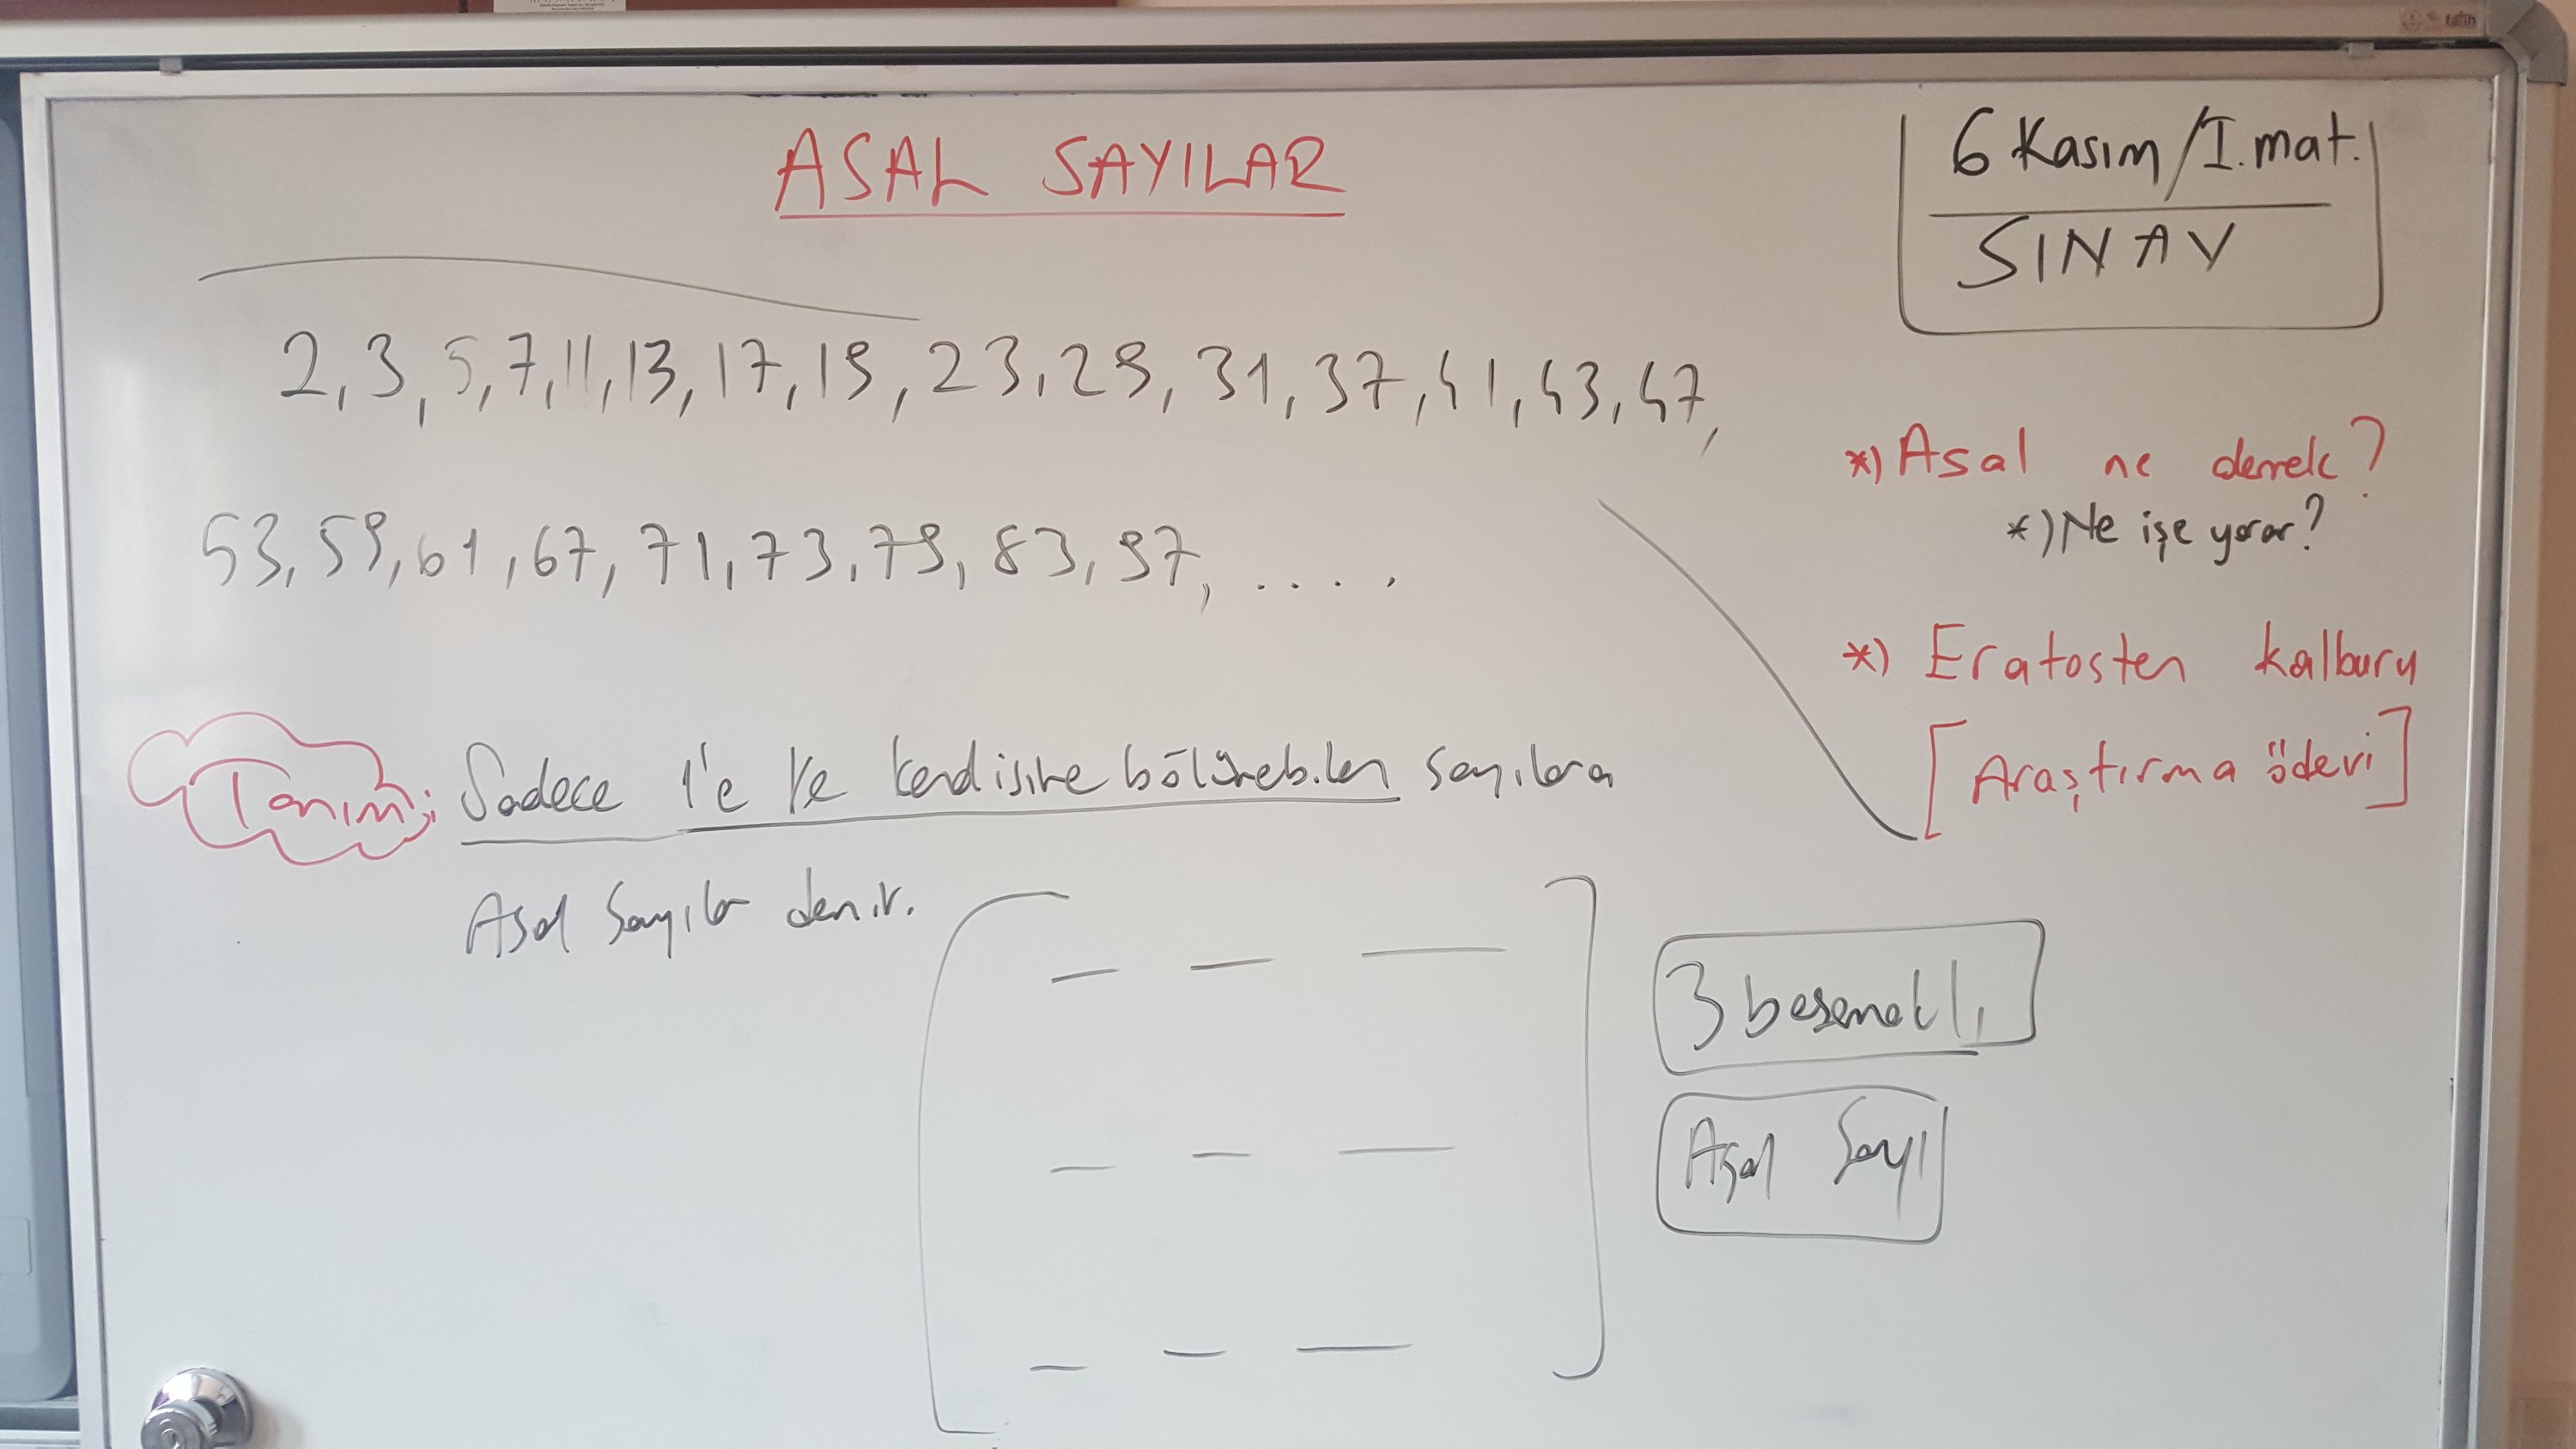 fatih
ASAL SAYILAR
6 Kasım/I.mat.
SINAV
2, 3, 5, 7, 11, 13, 17, 19, 23, 29, 31, 37, 41, 43, 47,
53, 59, 61, 67, 71, 73, 79, 83, 97, .....
*) Asal ne demek?
*) Ne işe yarar?
*) Eratosten kalburu
[Araştırma ödevi]
Tanım; Sadece 1'e ve kendisine bölünebilen sayılara
Asal Sayılar denir.
3 basamaklı
Asal Sayı